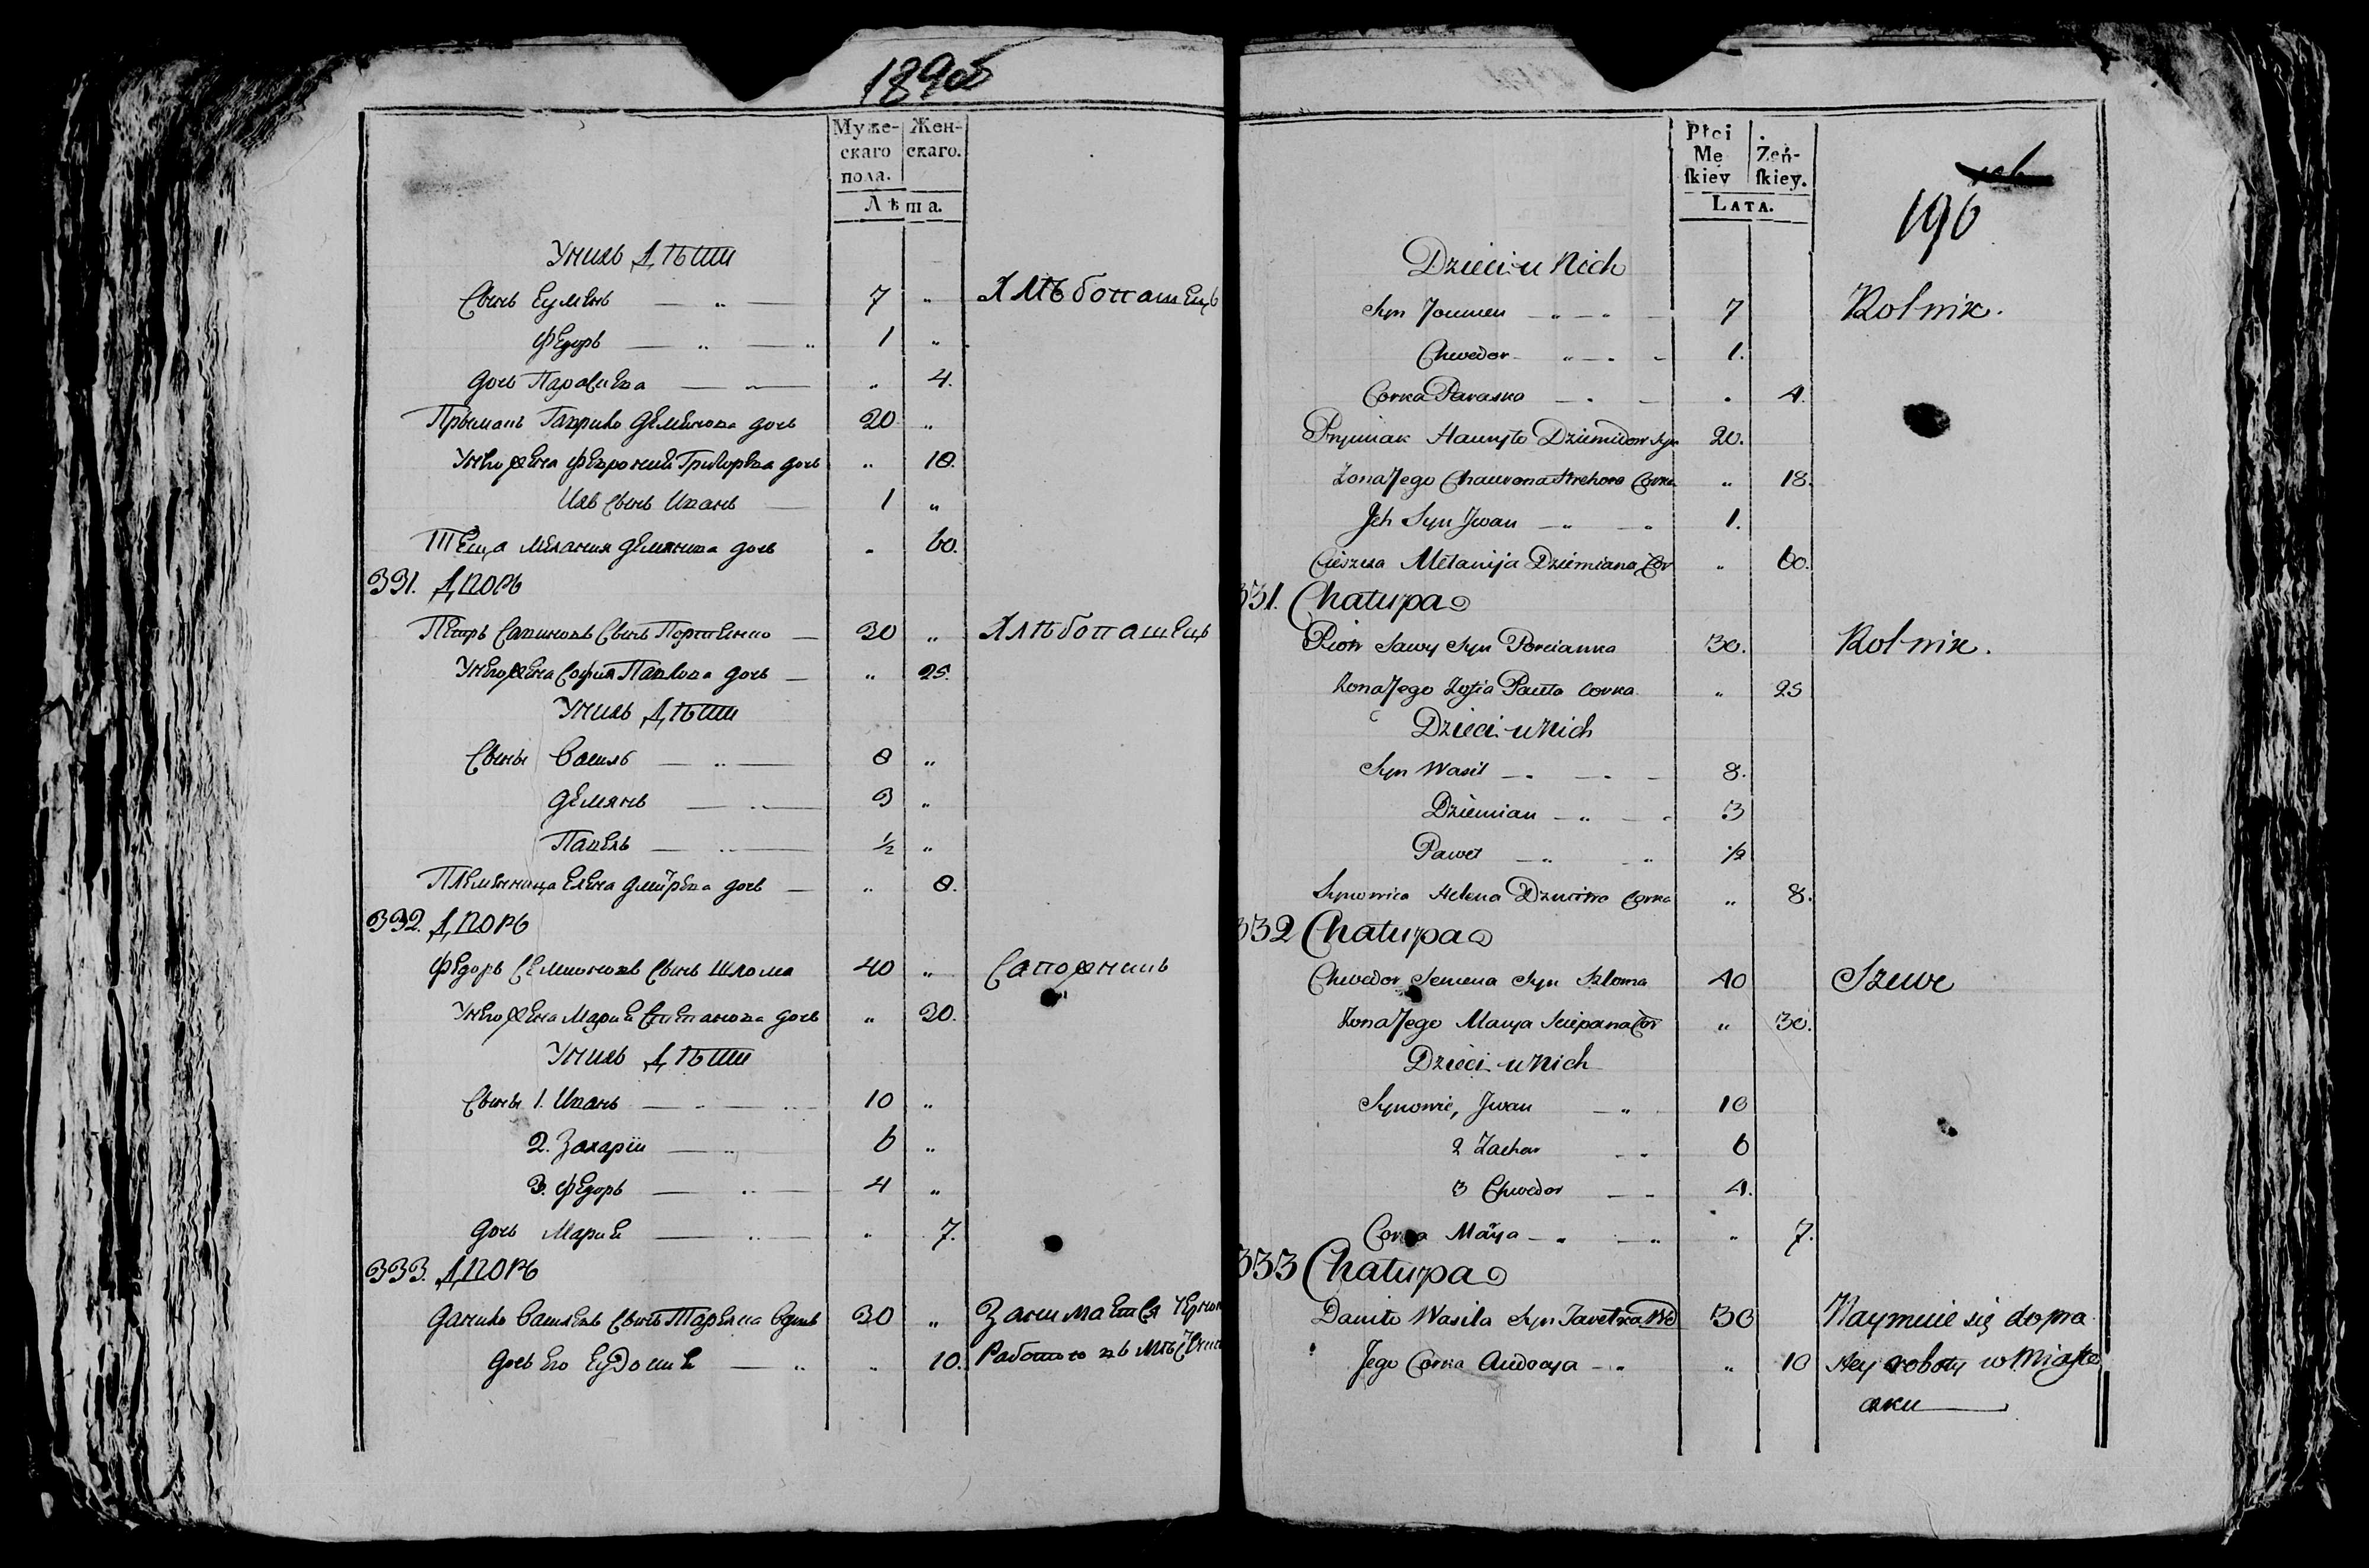 189об
Муже- Жен-
скаго скаго.
пола.
Лѣта.
У нихъ Дѣти
Сынъ Еуменъ 7 „ Хлѣбопашецъ
Федоръ 1 „
дочь Параскева „ 4.
Прымакъ Гаврило Деменова дочь 20 „
У него жена Феврония Григорьева дочь „ 18.
Ихъ сынъ Иванъ 1 „
Теща Мелания Демянова дочь „ 60.
331. Дворъ
Петръ Савиновъ сынъ Портянко 30 „ Хлѣбопашецъ
У него жена София Павлова дочь „ 25.
У нихъ Дѣти
Сыны Василь 8 „
Демянъ 3 „
Павелъ ½ „
Племянница Елена Дмитрева дочь „ 8.
332. Дворъ
Федоръ Семионовъ сынъ Шлома 40 „ Сапожникъ
У него жена Мария Степанова дочь „ 30.
У нихъ Дѣти
Сыны 1. Иванъ 10 „
2. Захарiи 6 „
3. Федоръ 4 „
дочь Мария „ 7.
333. Дворъ
Данило Василевъ сынъ 30 „ Занимается
дочь Его Еудокия „ 10. Работою въ
Płci
Mę Żeń-
skiey skiey.
LATA.
196
Dzieci u Nich
Syn Joumen 7 Rolnik.
Chwedor 1.
Corka Paraska „ 4.
Pryimak Hauryło Dziemidow Syn 20.
Żona Jego Chauronia Hrehora Corka „ 18.
Ich Syn Jwan 1.
Cieszcza Mełanija Dziemiana Cor „ 60.
331. Chałupa
Piotr Sawy Syn Porcianka 30. Rolnik.
Żona Jego Zofia Pawła Corka „ 25
Dzieci u Nich
Syn Wasil 8.
Dziemian 3
Paweł ½
Synowica Helena Dzmitra Corka „ 8.
332 Chałupa
Chwedor Semena Syn Szloma 40 Szewc
Żona Jego Marya Sciepana Cor „ 30.
Dzieci u Nich
Synowie, Jwan 10
2 Zachar 6
3 Chwedor 4.
Corka Marya „ 7.
333 Chałupa
Daniło Wasila Syn 30 Naymuie się do pra
Jego Corka Audocya „ 10 stey roboty w Miaste
czku